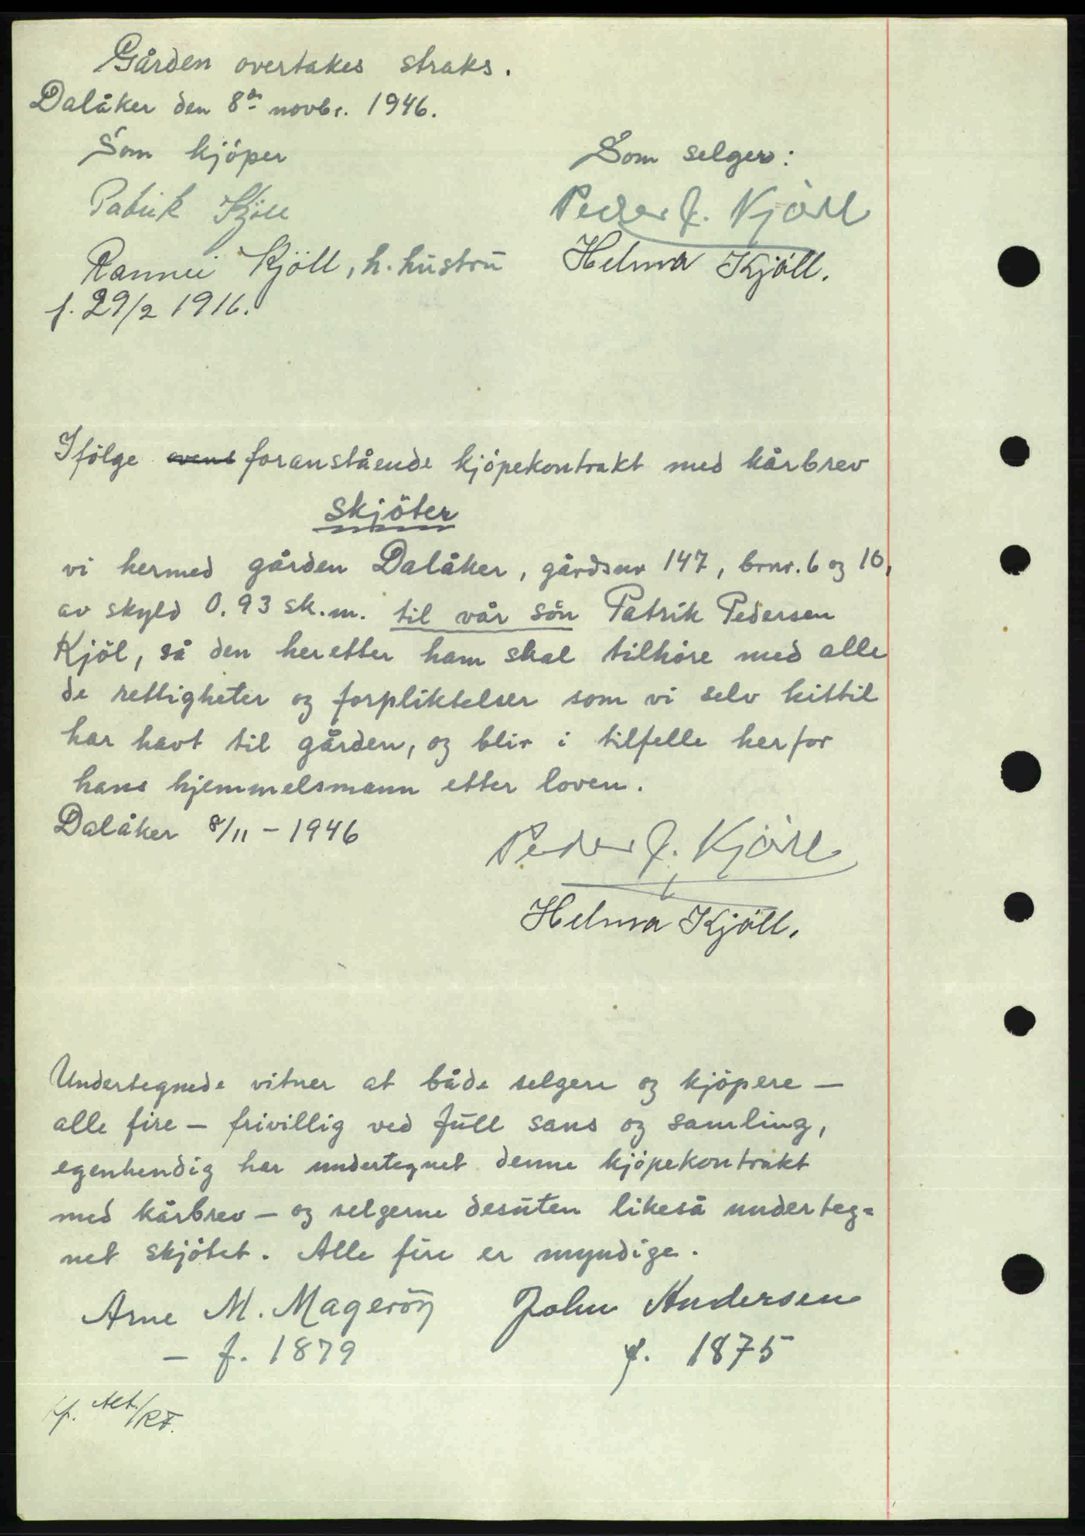 Gården overtakes straks.
Dalåker den 8de novbr. 1946.
Som kjöper
Som selger:
Patrik Kjöll
Peder J. Kjöll
Rannei Kjöll, h. hustru
Helma Kjöll.
f. 29/2 1916.
Ifölge avens foranstående kjöpekontrakt med kårbrev
skjöter
vi hermed gården Dalåker, gårdsnr 147, brnr. 6 og 10,
av skyld 0.93 sk.m. til vår sön Patrik Pedersen
Kjöl, så den heretter ham skal tilhöre med alle
de rettigheter og forpliktelser som vi selv hittil
har havt til gården, og blir i tilfelle herfor
hans hjemmelsmann etter loven.
Dalåker 8/11 - 1946
Peder J. Kjöll
Helma Kjöll.
Undertegnede vitner at både selgere og kjöpere —
alle fire — frivillig ved full sans og samling,
egenhendig har undertegnet denne kjöpekontrakt
med kårbrev — og selgerne desuten likeså underteg=
net skjötet. Alle fire er myndige.
Arne M. Mageröy
John Andersen
— f. 1879
f. 1875
/RF.